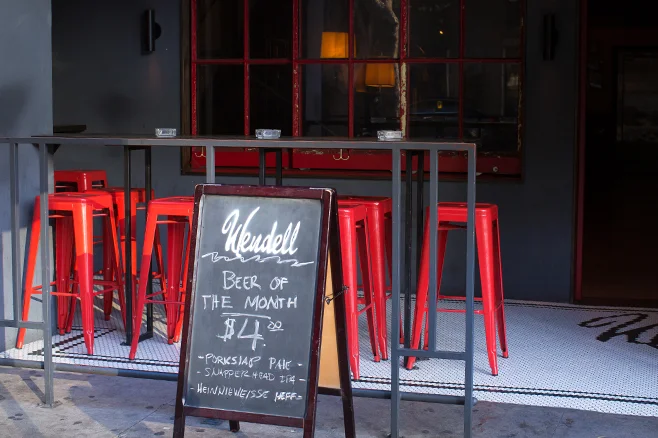 Wendell
BEER OF
THE MONTH
$4.00
- PORKSLAP PALE -
- SNAPPER HEAD IPA -
- HEINNIEWEISSE HEFF -